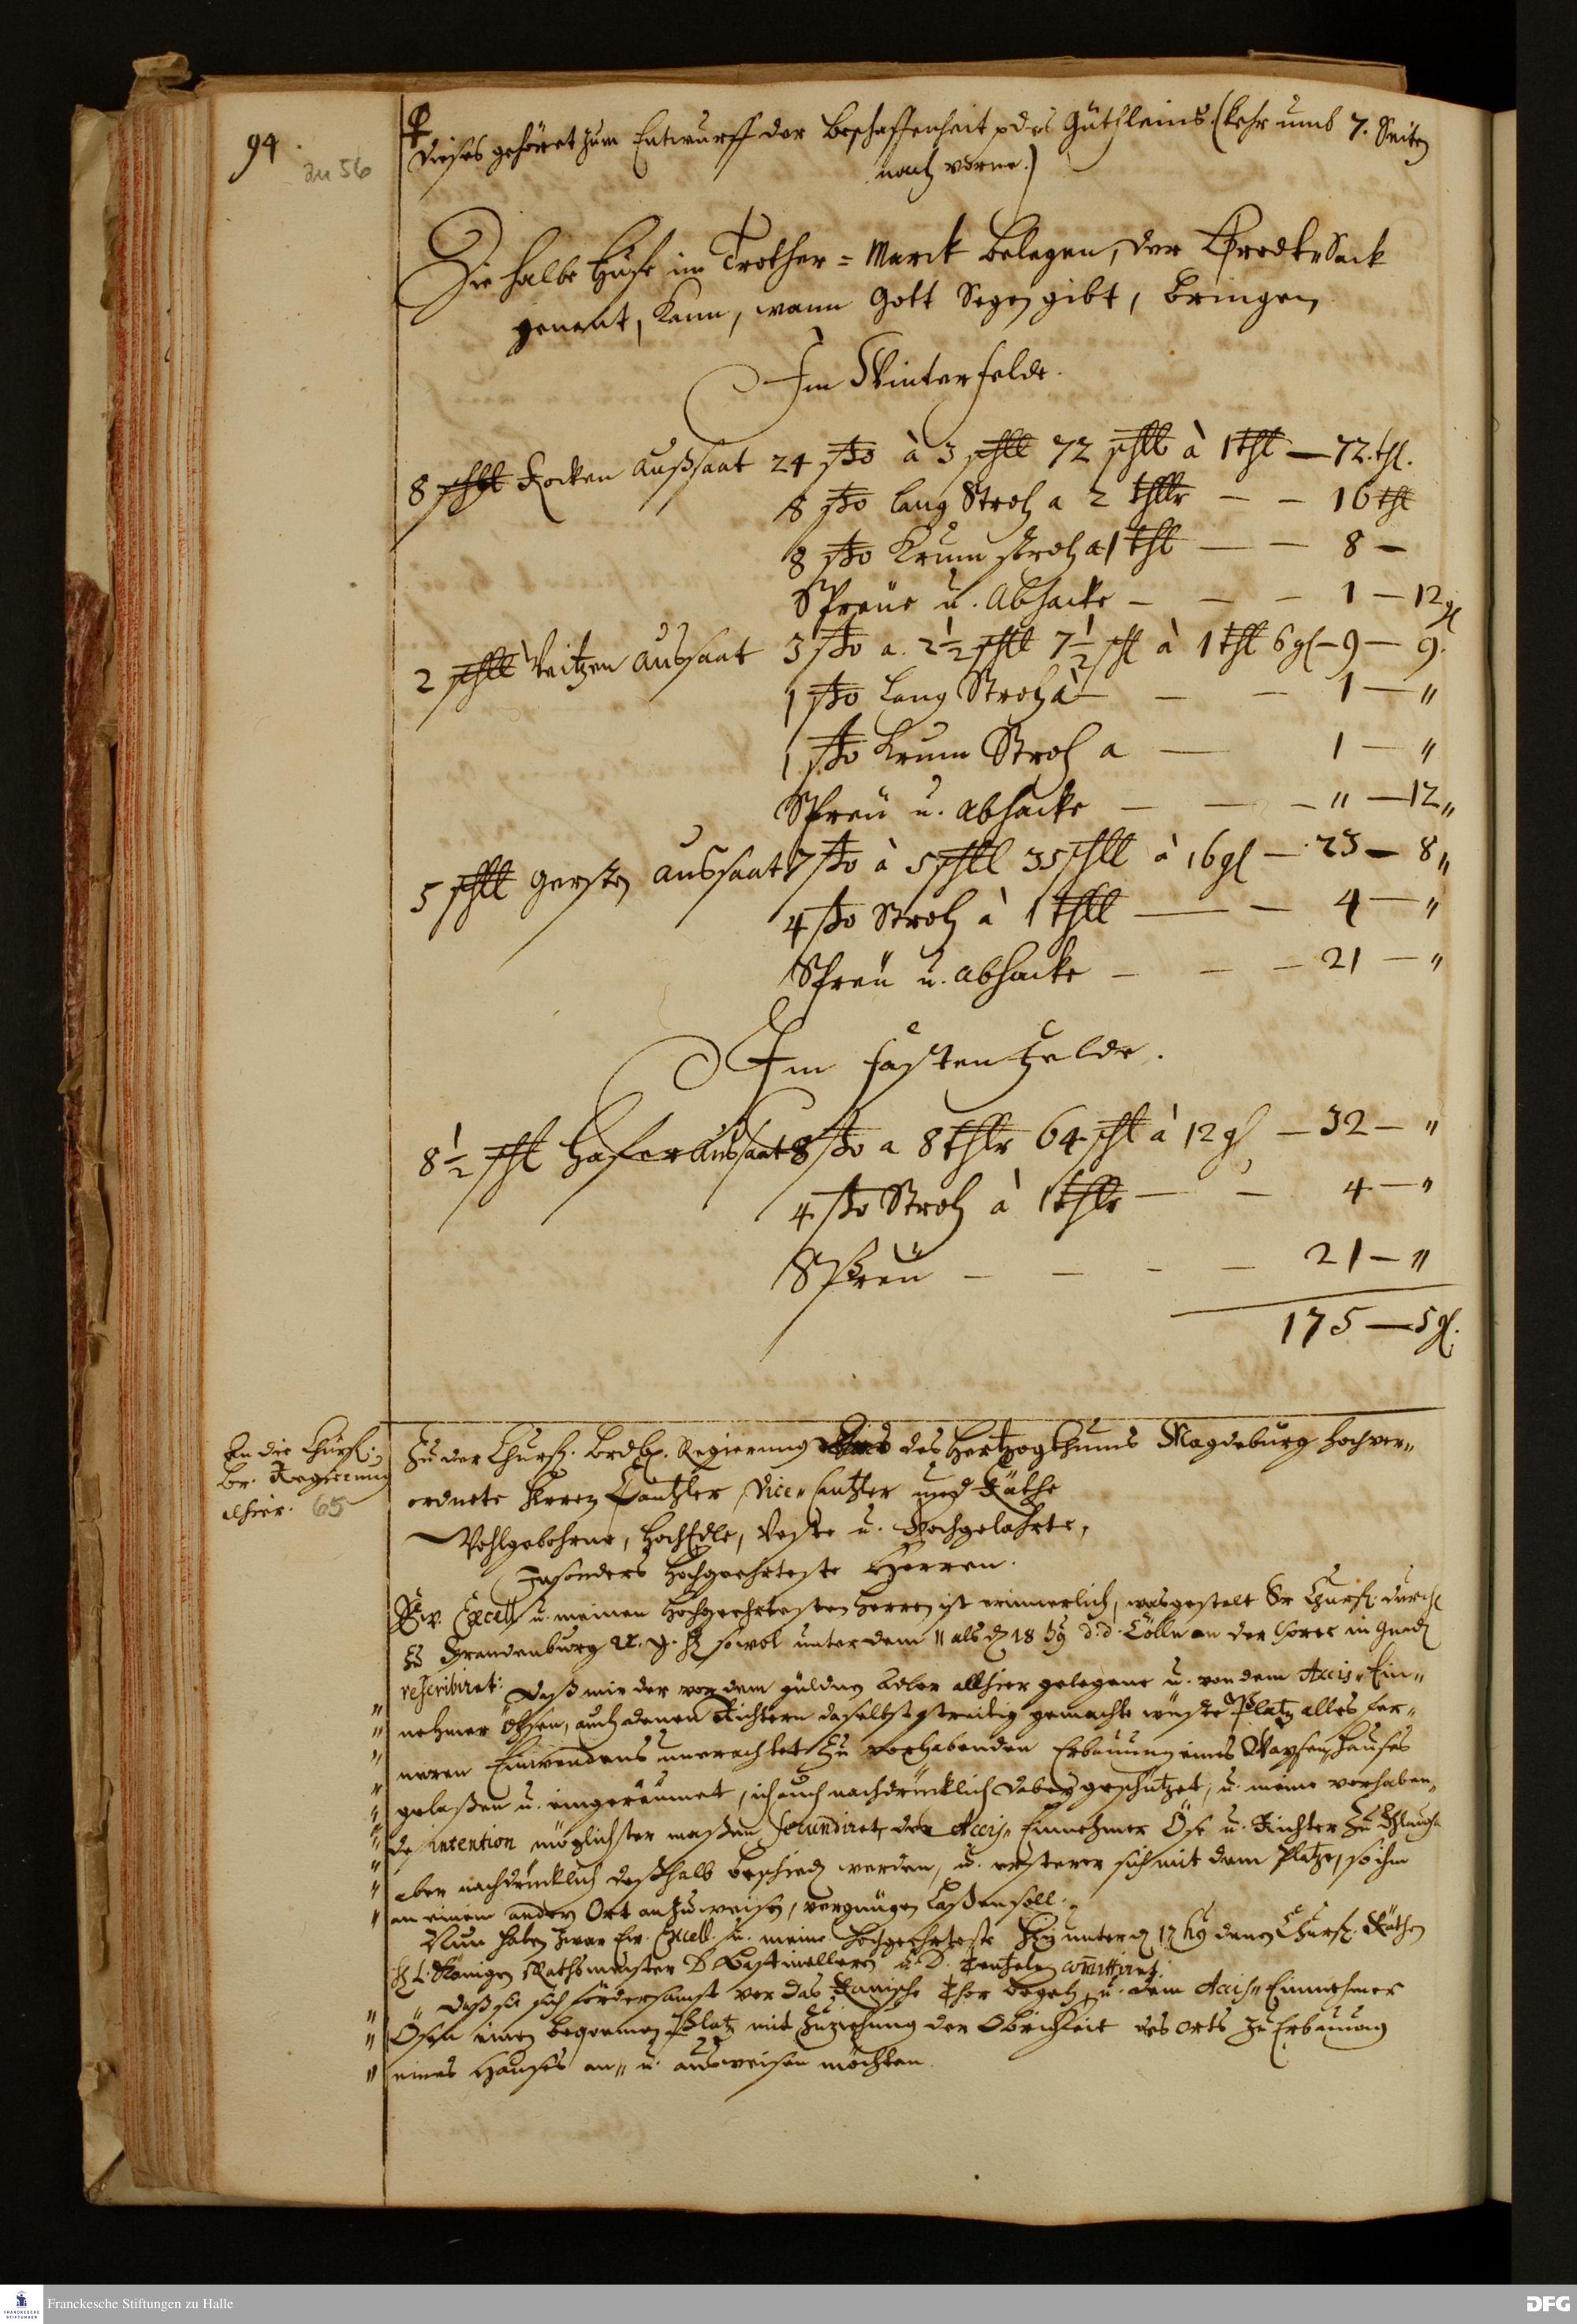 94.
zu 56
Dieses gehöret zum Entwurff der Beschaffenheit des Gütleins (kehr umb 7. Seiten
nach vorne.)
Die halbe Hufe im Trother=Marck belegen, der Sack
genent, kann, wann Gott Segen gibt, bringen
Im Winterfelde.
8 schll Rocken Außsaat 24 ßo à 3 schll 72 schll à 1 thl — 72. thl.
8 ßo lang Stroh a 2 thllr — — 16 thl
8 ßo Krum stroh a 1 thl — — 8 —
Spreue u. Abhacke — — — 1 — 12 gl
2 schll Weitzen Aussaat 3 ßo a. 2½ schll 7½ schl à 1 thl 6 gl — 9 — 9.
1 ßo lang Stroh à — — — 1 — "
1 ßo Krum Stroh a — 1 — "
Spreu u. Abhacke — — — " — 12 "
5 schll Gersten Aussaat 7 ßo à 5 schll 35 schll à 16 gl — 23 — 8 "
4 ßo Stroh à 1 thll — — 4 — "
Spreu u. Abhacke — — — 21 — "
Im Fasten Felde.
8½ schl Hafer Aussaat 8 ßo a 8 thlr 64 schl à 12 gl — 32 — "
4 ßo Stroh à 1 thllr — — 4 — "
Spreu — — — — 21 — "
175 — 5 gl.
An die Churfl.
Br. Regierung
alhier. 65
Zu der Churfl. Brdbl. Regierung des Hertzogthums Magdeburg Hochver"
ordnete Herren Cantzler, Vice-Cantzler und Räthe
Wohlgebohrne, HochEdle, Veste u. Hochgelahrte,
Insonders Hochgeehrteste Herren.
Ew. Excell. u. meinen Hochgeehrtesten Herren ist erinnerlich, wasgestalt Sr Churfl. Durchl
zu Brandenburg sowol unter dem 11 als d 18 d.d. Cölln an der Spree in Gnad
rescribiret: Daß mir der vor dem gülden Adler allhier gelegene u. von dem Accis-Ein"
" nehmer Ösen, auch denen Richtern daselbst streitig gemachte wüste Platz alles fer"
" neren Einwendens unerachtet zu vorhabenden Erbauung eines Waysen hauses
" gelaßen u. eingeräumet, ich auch nachdrücklich dabey geschützet, u. meine vorhaben"
" de intention möglichster maßen secundiret, der Accis-Einnehmer Öse u. Richter zu Glaucha
" aber nachdrücklich deßhalb beschied werden, u. ersterer sich mit dem Platze, so ihm
" an einem andern Ort anzuweisen, vergnügen laßen soll.
Nun haben zwar Ew. Excell. u. meine Hochgeehrteste HH. unter d 17 denen Churfl. Räthen
Rathsmeister D. Bastinellern u. D. committiret:
" Daß sie sich fördersamst vor das Ranische Thor begeb, u. dem Accis-Einnehmer
" Ösen einen bequemen Platz mit Zuziehung der Obrigkeit des Orts zu Erbauung
" eines Hauses an- u. ausweisen möchten.
Franckesche Stiftungen zu Halle
DFG